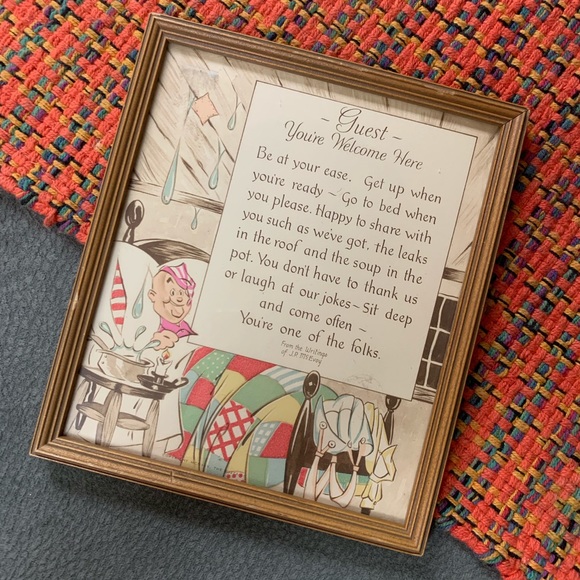 - Guest -
You're Welcome Here
Be at your ease. Get up when
you're ready - Go to bed when
you please. Happy to share with
you such as we've got, the leaks
in the roof and the soup in the
pot. You don't have to thank us
or laugh at our jokes - Sit deep
and come often -
You're one of the folks.
From the Writings
of J.R. McEvoy